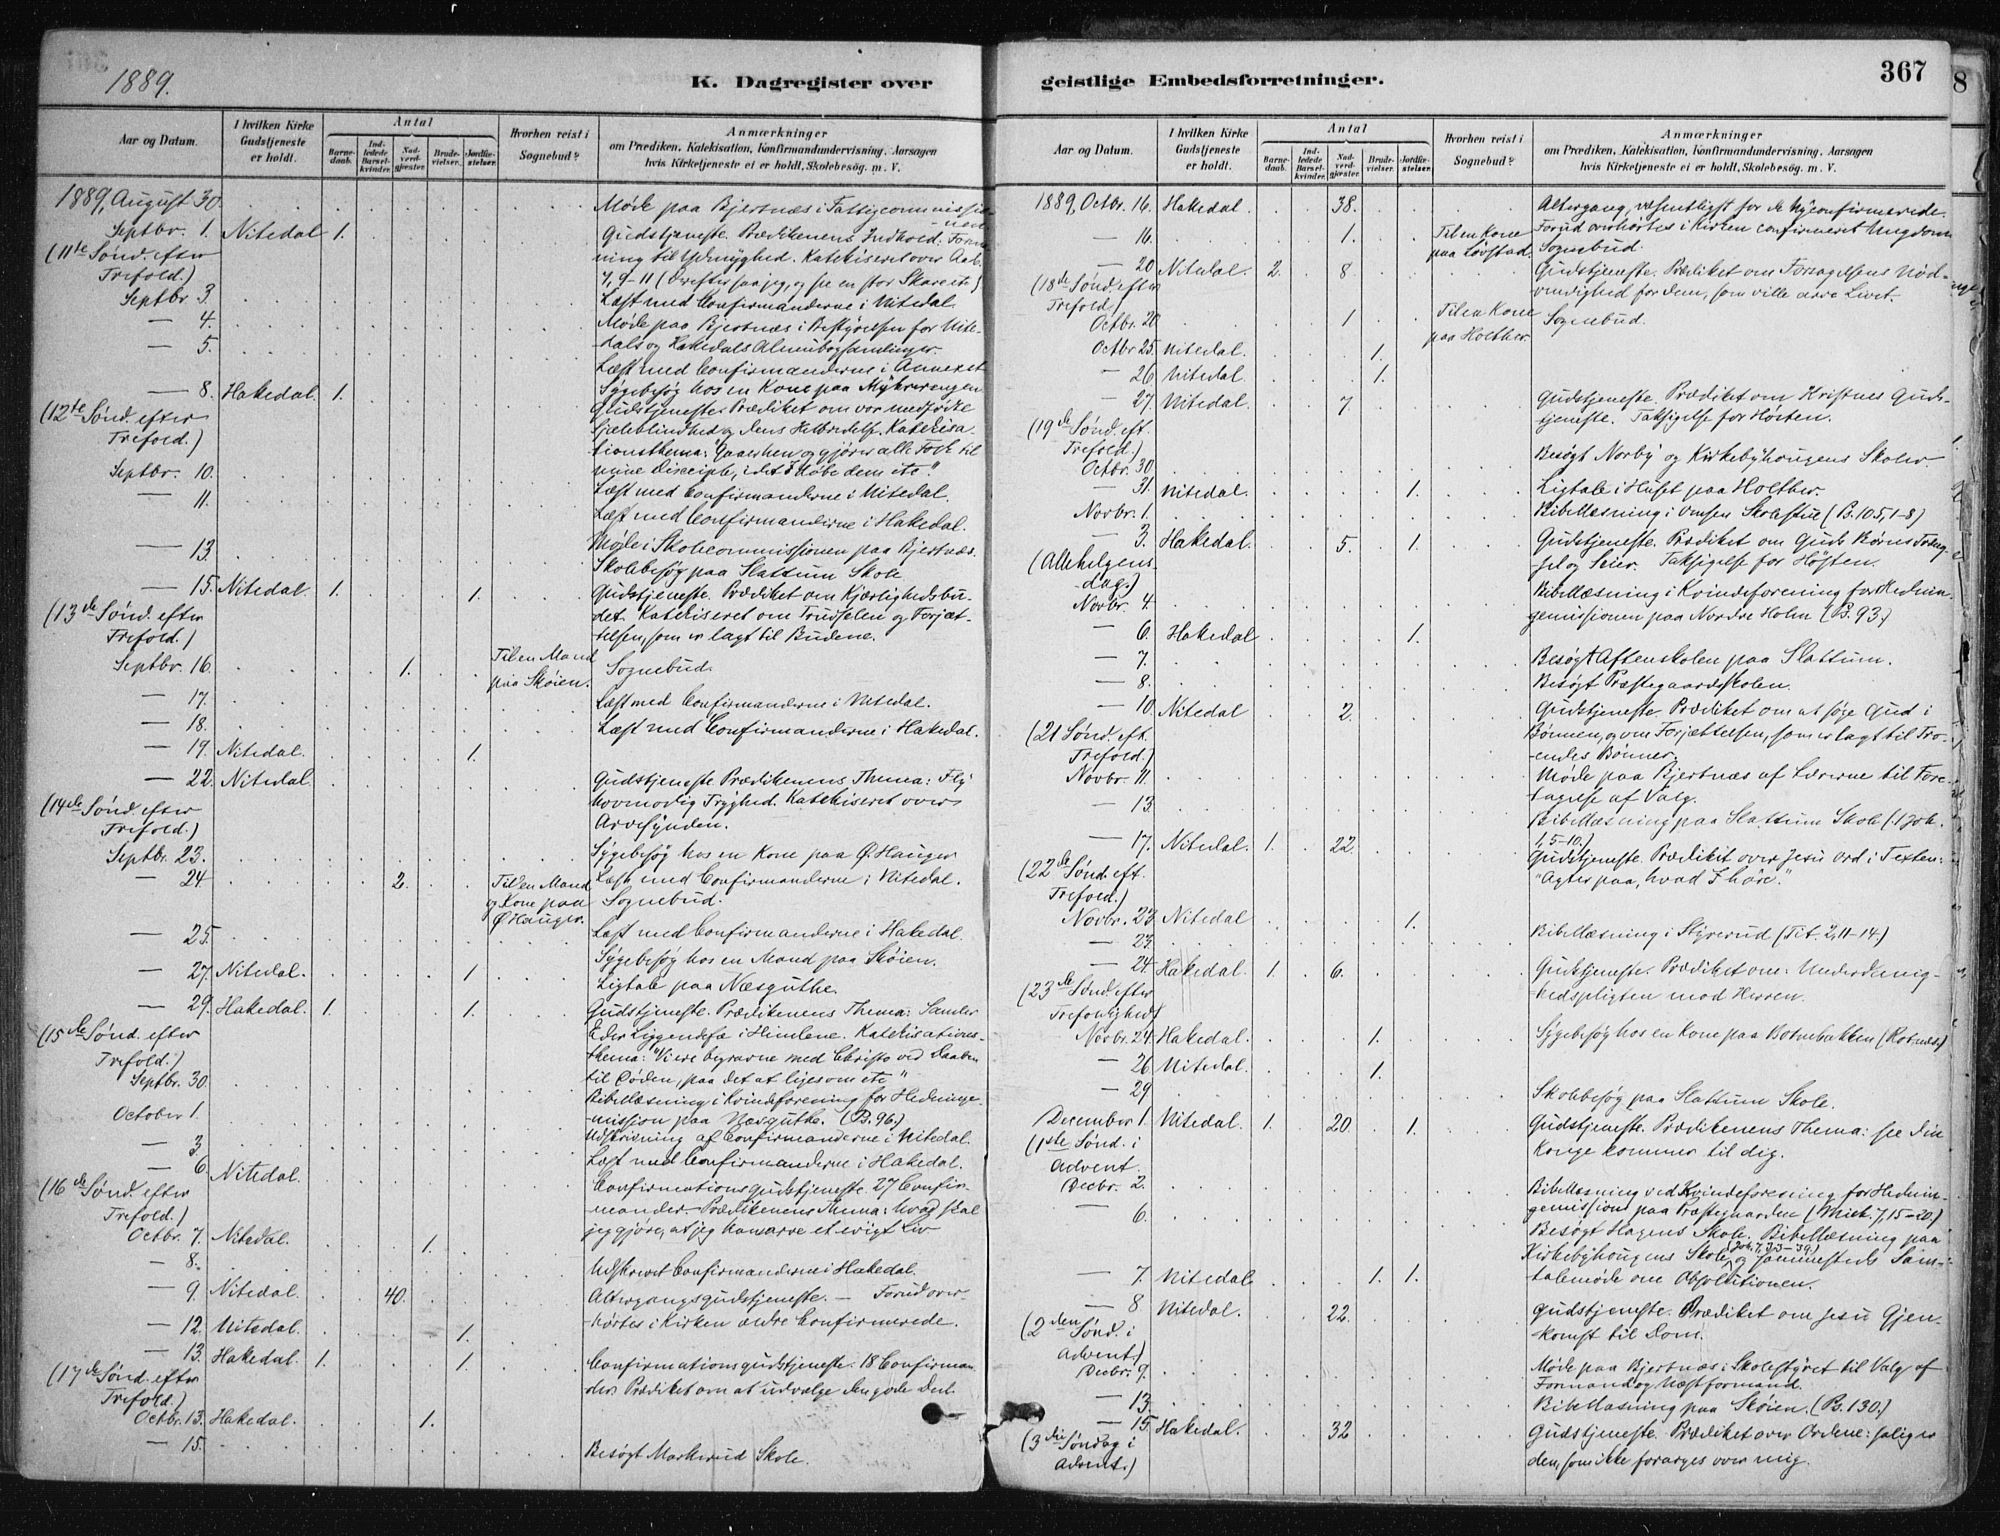 1889.
K. Dagregister over
Aar og Datum.
I hvilken Kirke Gudstjeneste er holdt.
Antal
Barnedaab.
Indledede Barselkvinder.
Nadverdgjester.
Brudevielser.
Jordfæstelser.
Hvorhen reist i Sognebud?
Anmærkninger
om Prædiken, Katekisation, Konfirmandundervisning, Aarsagen
hvis Kirketjeneste ei er holdt, Skolebesøg. m. V.
1889, August 30. Møde paa Bjertnæs i Fattigcommissionen
Septbr. 1. Nitedal 1. Gudstjeneste. Prædikenens Indhold: Forma-
(11te Sønd. efter ning til Ydmyghed. Katekiseret over Aab.
Trefold.) 7, 9-11 (Derefter saa jeg, og se en stor Skare etc.)
Septbr. 3. Læst med Confirmanderne i Nitedal
— 4. Møde paa Bjertnæs i Bestyrelsen for Nite-
dals og Hakedals Almuebogsamlinger.
— 5. Læst med Confirmanderne i Annexet
Sygebesøg hos en Kone paa Myhrerengen
— 8. Hakedal. 1. Gudstjeneste. Prædiket om vor medfødte
(12te Sønd. efter Sjæleblindhed og dens Helbredelse. Katekisa-
Trefold.) tionsthema: Gaaer hen og gjører alle Folk til
mine Disciple, idet I døbe dem etc."
Septbr. 10. Læst med Confirmanderne i Nitedal.
— 11. Læst med Confirmanderne i Hakedal.
— 13 Møde i Skolecommissionen paa Bjertnæs.
Skolebesøg paa Slattum Skole
— 15. Nitedal. 1. 1. Gudstjeneste. Prædiket om Kjærlighedsbu-
(13de Sønd. efter det. Katekiseret om Trudselen og Forjæt-
Trefold.) telsen, som er lagt til Budene.
Septbr. 16 1. Til en Mand Sognebud.
paa Skøien.
— 17. Læst med Confirmanderne i Nitedal.
— 18. Læst med Confirmanderne i Hakedal.
— 19. Nitedal. 1.
— 22. Nitedal. Gudstjeneste Prædikenens Thema: Fly
(14de Sønd. efter hovmodig Tryghed. Katekiseret over
Trefold.) Arvesynden.
Septbr. 23. Sygebesøg hos en Kone paa Ø. Hauger
— 24 2. Til en Mand Læst med Confirmanderne i Nitedal.
og Kone paa Sognebud.
Ø Hauger.
— 25. Læst med Confirmanderne i Hakedal.
Sygebesøg hos en Mand paa Skøien.
— 27. Nitedal. 1 Ligtale paa Næsguthe.
— 29. Hakedal. 1. 1. Gudstjeneste. Prædikenens Thema: Samler
(15de Sønd. efter Eder Liggendefæ i Himlene. Katekisations-
Trefold.) thema: "Vi ere begravne med Christo ved Daaben
Septbr. 30. til Døden, paa det at ligesom etc"
Bibellæsning i Kvindeforening for Hedninge-
October 1. mission paa Næsguthe. (Ps. 96.)
Udskrivning af Confirmanderne i Nitedal.
— 3. Læst med Confirmanderne i Hakedal.
— 6. Nitedal. Confirmationsgudstjeneste. 27 Confir-
(16de Sønd. efter mander. Prædikenens Thema: hvad skal
Trefold.) jeg gjøre, at jeg kan arve et evigt Liv
Octbr. 7. Nitedal. 1.
— 8. Udskrevet Confirmanderne i Hakedal.
— 9. Nitedal. 40. Altergangsgudstjeneste. — Forud over-
hørtes i Kirken ældre Confirmerede.
— 12. Nitedal. 1.
— 13. Hakedal. 1. 1. Confirmationsgudstjeneste. 18 Confirman-
(17de Sønd. efter der. Prædiket om at udvælge den gode Deel.
Trefold.)
Octbr. 13. Hakedal. 1.
— 15. Besøgt Markerud Skole.
geistlige Embedsforretninger.
367
Aar og Datum.
I hvilken Kirke Gudstjeneste er holdt.
Antal
Barnedaab.
Indledede Barselkvinder.
Nadverdgjester.
Brudevielser.
Jordfæstelser.
Hvorhen reist i Sognebud?
Anmærkninger
om Prædiken, Katekisation, Konfirmandundervisning, Aarsagen
hvis Kirketjeneste ei er holdt, Skolebesøg. m. V.
1889, Octbr. 16. Hakedal. 38. Altergang, væsentligst for de nyconfirmerede.
Forud overhørtes i Kirken confirmeret Ungdom
— 16. 1. Til en Kone Sognebud.
paa Løvstad.
— 20 Nitedal 2. 8. Gudstjeneste. Prædiket om Forsagelsens Nød-
(18de Sønd. efter vendighed for dem, som ville arve Livet.
Trefold.)
Octbr. 20 1 Til en Kone Sognebud.
paa Holther.
Octbr. 25. Nitedal. 1.
— 26 Nitedal. 1.
— 27. Nitedal. 7. Gudstjeneste. Prædiket om Kristnes Guds-
(19de Sønd. eft. tjeneste. Taksigelse for Høsten.
Trefold.)
Octbr. 30 Besøgt Norby og Kirkebyhougens Skoler.
— 31. Nitedal. 1. Ligtale i Huset paa Holther.
Novbr. 1. Bibellæsning i Skolestue (Ps. 105, 1-8)
— 3. Hakedal. 5. 1. Gudstjeneste. Prædiket om Guds Børns Træng-
(Allehelgens- sel og Seier. Taksigelse for Høsten.
dag.)
Novbr. 4. Bibellæsning i Kvindeforening for Hednin-
gemissionen paa Nordre Holm (Ps. 93.)
— 6. Hakedal 1.
— 7. Besøgt Aftenskolen paa Slattum.
— 8. Besøgt Præstegaardsskolen.
— 10. Nitedal 2. Gudstjeneste Prædiket om at søge Gud i
(21 Sønd. eft. Bønnen, og om Forjættelsen, som er lagt til Tro-
Trefold.) endes Bønner.
Novbr. 11. Møde paa Bjertnæs af Lærerne til Fore-
tagelse af Valg.
— 13 Bibellæsning paa Slattum Skole (1 Joh.
1, 5-10.)
— 17. Nitedal. 1. 22. Gudstjeneste. Prædiket over Jesu Ord i Texten:
(22de Sønd. eft. "Agter paa, hvad I høre."
Trefold.)
Novbr. 23 Nitedal 1.
— 23. Bibellæsning i Styrerud (Tit. 2, 11-14.)
— 24. Hakedal. 1. 6. Gudstjeneste. Prædiket om: Underdanig-
(23de Sønd. efter hedspligten mod Herren.
Trefoldighed)
Novbr. 24. Hakedal. 1. Sygebesøg hos en Kone paa Botnebakken (Rotnæs)
— 26. Nitedal. 1.
— 29 Skolebesøg paa Slattum Skole.
December 1. Nitedal. 1. 20. 1. Gudstjeneste. Prædikenens Thema: se din
(1ste Sønd. i Konge kommer til dig.
Advent.
Decbr. 2. Bibellæsning ved Kvindeforening for Hednin-
gemission paa Præstegaarden (Mich. 7, 15-20.)
— 6. Besøgt Hagens Skole. Bibellæsning paa
Kirkebyhougens Skole (Joh. 7, 33-39.) og sammesteds Sam-
talemøde om Absolutionen.
— 7. Nitedal 1. 1.
— 8 Nitedal. 22. Gudstjeneste. Prædiket om Jesu Gjen-
(2den Sønd. i komst til Dom.
Advent.)
Decbr. 9. Møde paa Bjertnæs i Skolestyret til Valg af
Formand og Næstformand.
— 13. Bibellæsning paa Skøien. (Ps. 130.)
— 15. Hakedal. 32 Gudstjeneste. Prædiket over Ordene: salig er
(3die Søndag i den, som ikke forarges over mig.
Advent.)